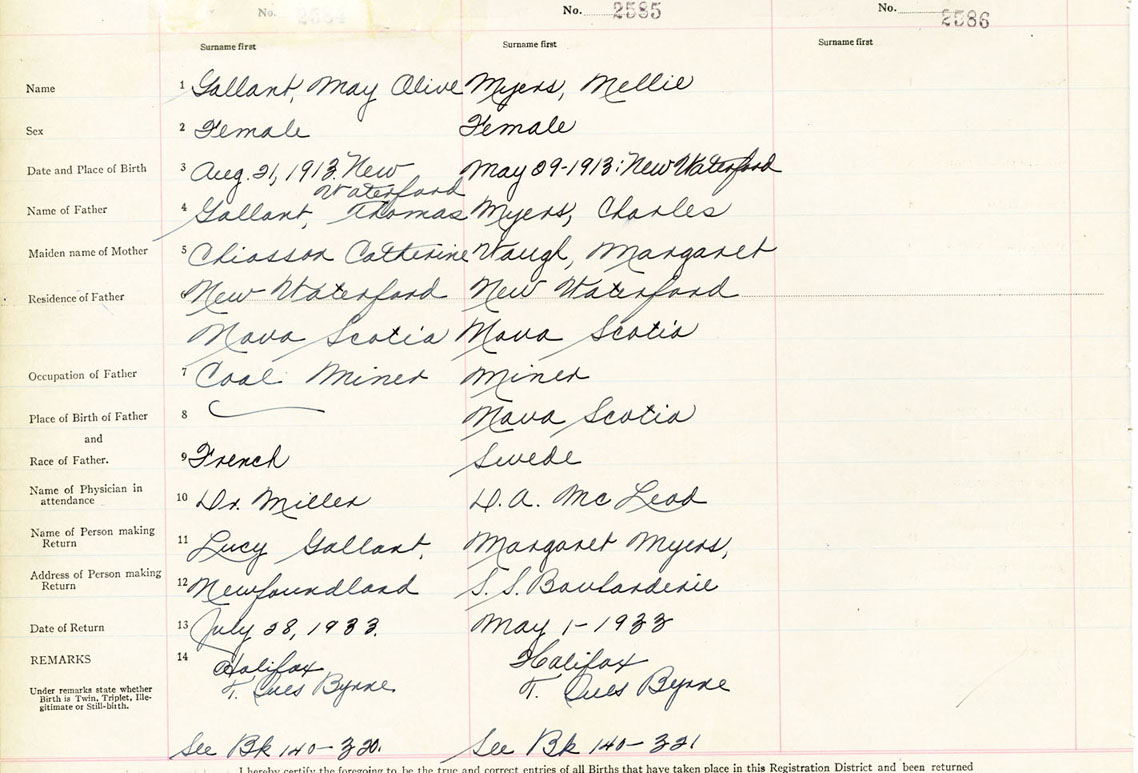 No. 2584 No. 2585 No. 2586
Surname first Surname first Surname first
Name 1 Gallant, May Olive Myers, Mellie
Sex 2 Female Female
Date and Place of Birth 3 Aug. 21, 1913. New Waterford May 29-1913: New Waterford
Name of Father 4 Gallant, Thomas Myers, Charles
Maiden name of Mother 5 Chiasson Catherine Waugh, Margaret
Residence of Father 6 New Waterford New Waterford
Nova Scotia Nova Scotia
Occupation of Father 7 Coal Miner Miner
Place of Birth of Father 8 Nova Scotia
and
Race of Father. 9 French Swede
Name of Physician in
attendance 10 Dr. Miller D.A. McLeod
Name of Person making
Return 11 Lucy Gallant, Margaret Myers,
Address of Person making
Return 12 Newfoundland S.S. Boularderie
Date of Return 13 July 28, 1933. May 1-1933
REMARKS 14 Halifax Halifax
Under remarks state whether
Birth is Twin, Triplet, Ille-
gitimate or Still-birth.
T. Ives Byrne T. Ives Byrne
See Bk 140-320. See Bk 140-321
I hereby certify the foregoing to be the true and correct entries of all Births that have taken place in this Registration District and been returned